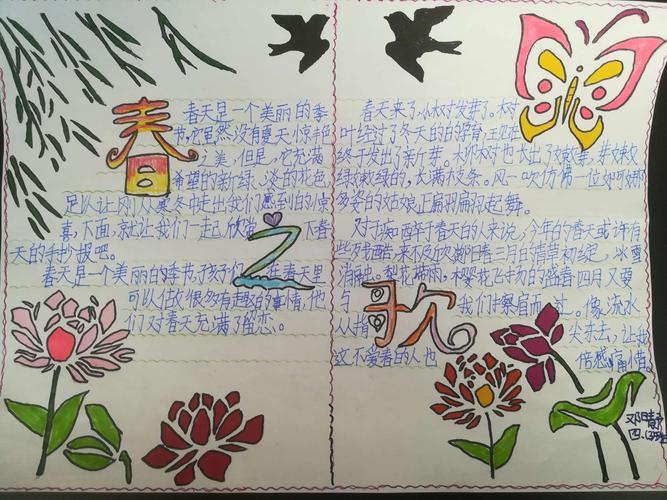 春
之
歌
春天是一个美丽的季
节。它虽然没有夏天惊艳
之美,但是,它充满
希望的新绿、淡淡的花色
足以让刚从寒冬中走出我们感到的惊
喜,下面,就让我们一起欣赏一下春
天的手抄报吧。
春天是一个美丽的季节,孩子们在春天里
可以做很多有趣的事情,他
们对春天充满了留恋。
春天来了,小树发芽了。树
叶经过了冬天的
终于发出了新芽。柳树也长出了嫩芽,芽嫩
绿嫩绿的,长满了枝条。风一吹仿佛一位婀娜
多姿的姑娘正翩翩起舞。
对于知晒年于春天的人来说,今年的春天或许有
些残酷,来不及欣
消融、梨花 樱花飞扬的盛春四月又要
与 我们擦肩而过。像流水
从指 尖赤去,让我
这不爱春的人也 倍感痛惜。
邓晴
四.